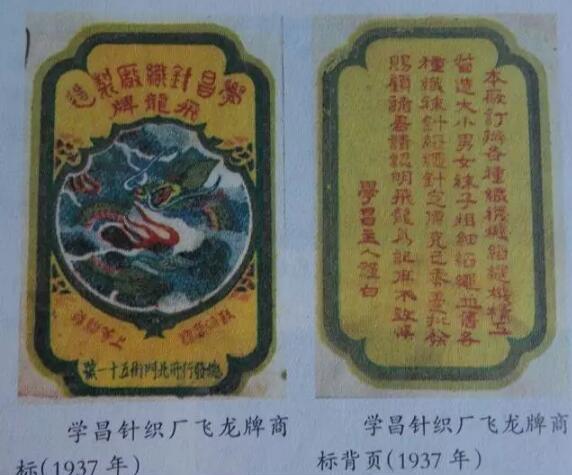 學昌針織廠製造
飛龍牌
總發行所北門街五十一號
本廠訂購各種織機 織娘精工
督造大小男女襪子粗細 各
種織襪針 針之價克己零躉批發
賜顧諸君請認明飛龍為記庶不致悞
學昌主人謹白
学昌针织厂飞龙牌商
标(1937年)
学昌针织厂飞龙牌商
标背页(1937年)